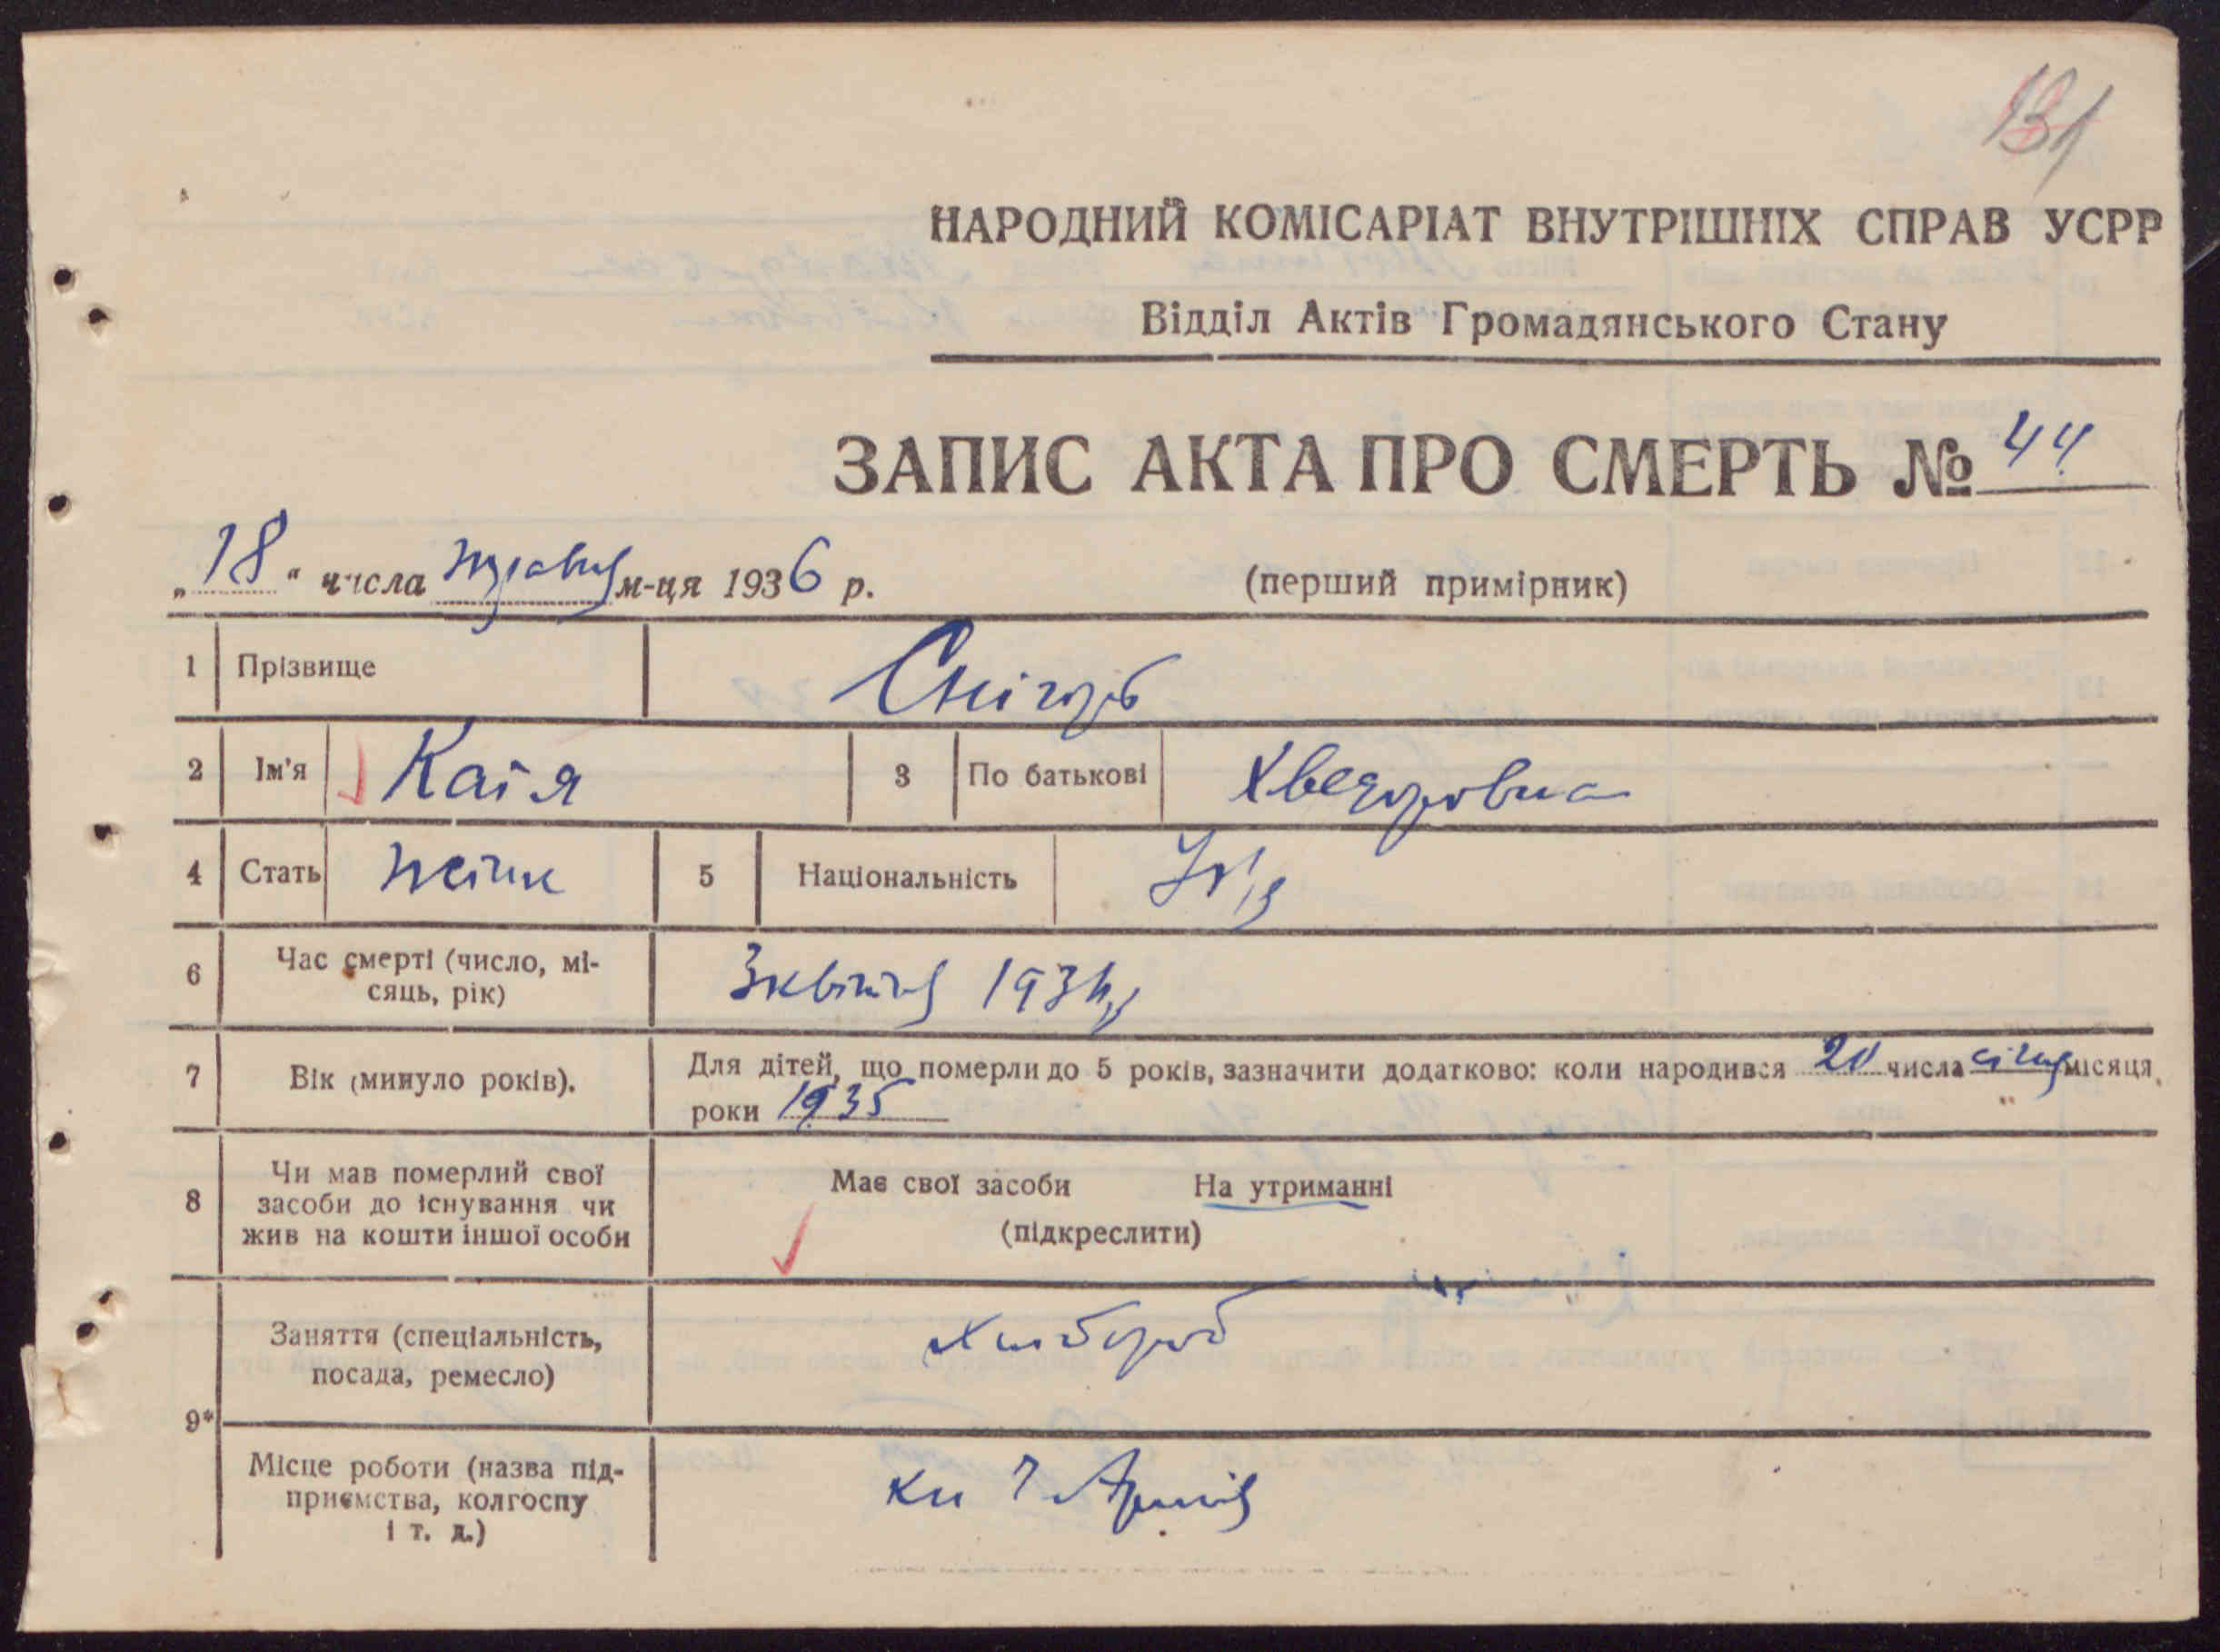 131
НАРОДНИЙ КОМІСАРІАТ ВНУТРІШНІХ СПРАВ УСРР
Відділ Актів Громадянського Стану
ЗАПИС АКТА ПРО СМЕРТЬ № 44
„18“ числа травня м-ця 1936 р. (перший примірник)
1 Прізвище Снігур
2 Ім'я Катя 3 По батькові Хведоровна
4 Стать жіни 5 Національність Укр
6 Час смерті (число, мі-
сяць, рік)
3 квітня 193
7 Вік (минуло років).
Для дітей, що померли до 5 років, зазначити додатково: коли народився 20 числа січня місяця
роки 1935
8 Чи мав померлий свої
засоби до існування чи
жив на кошти іншої особи
Має свої засоби На утриманні
(підкреслити)
9*
Заняття (спеціальність,
посада, ремесло)
Хлібороб
Місце роботи (назва під-
приємства, колгоспу
і т. д.)
Армія